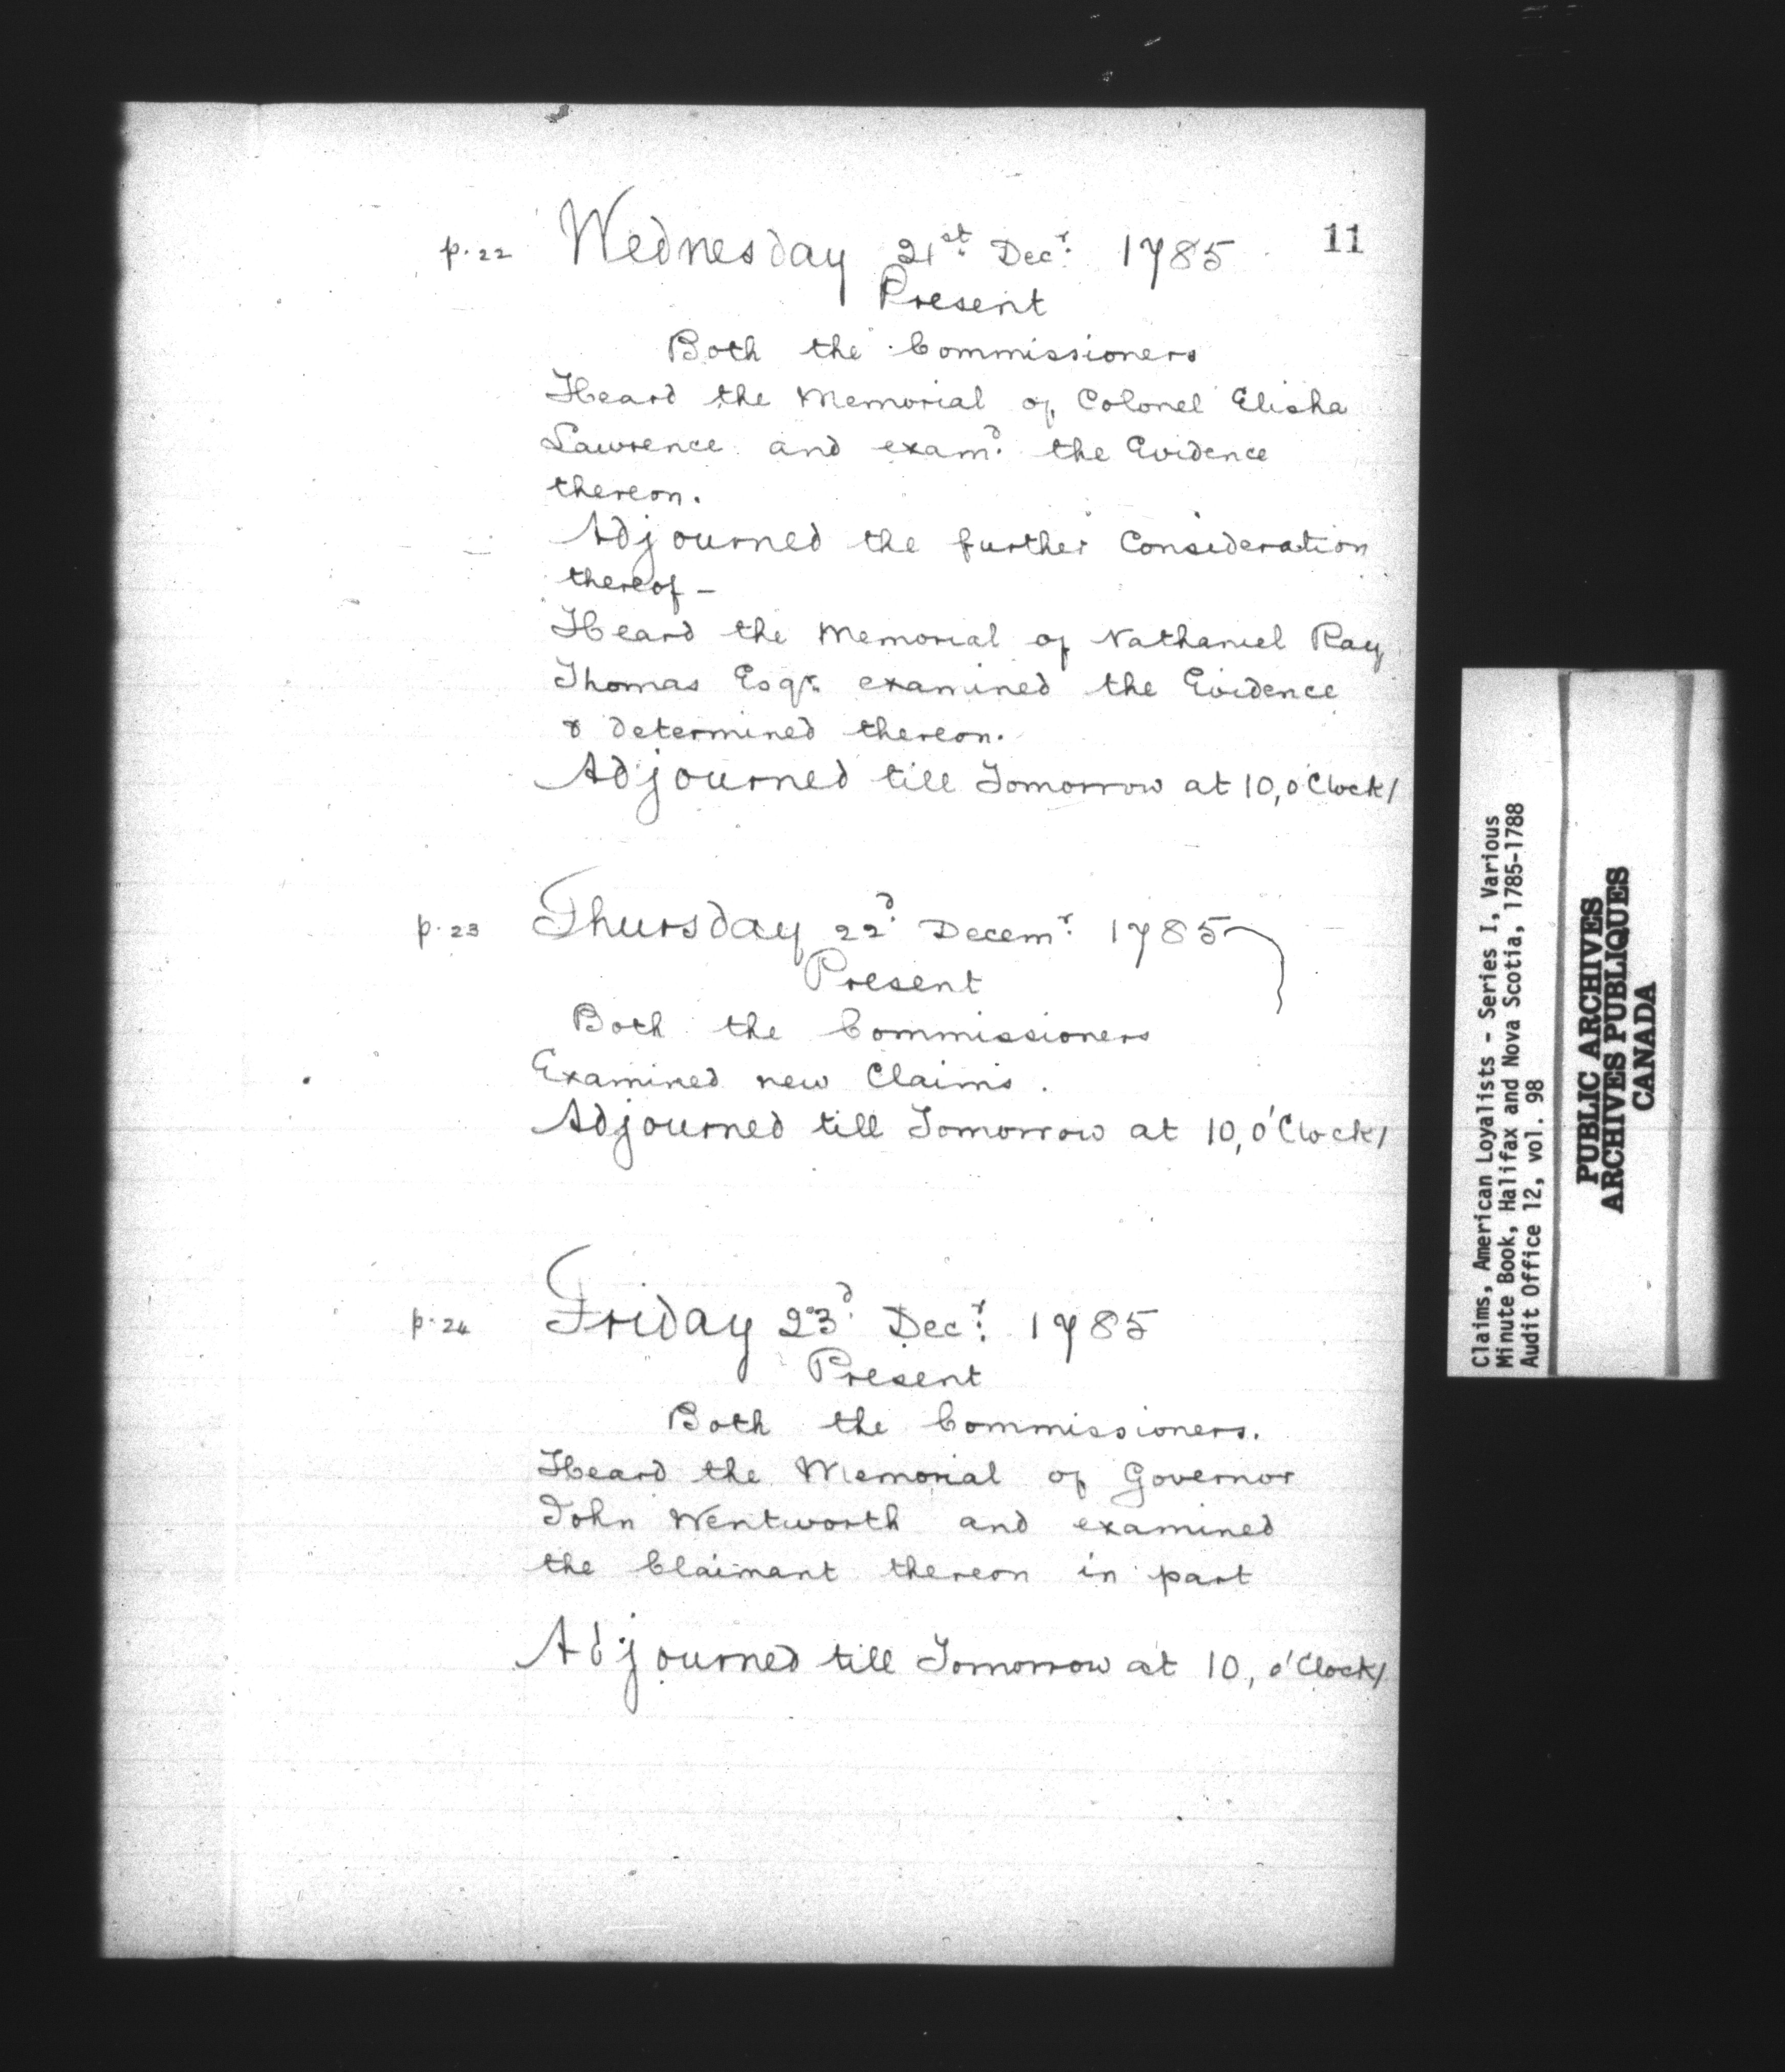 11
p. 22 Wednesday 21st Decr. 1785
Present
Both the Commissioners
Heard the Memorial of Colonel Elisha
Lawrence and examd. the Evidence
thereon.
Adjourned the further Consideration
thereof -
Heard the Memorial of Nathaniel Ray
Thomas Esqr. examined the Evidence
& determined thereon.
Adjourned till Tomorrow at 10, o'Clock/
p. 23 Thursday 22d. Decemr. 1785
Present
Both the Commissioners
Examined new Claims.
Adjourned till Tomorrow at 10, o'Clock/
p. 24 Friday 23d. Decr. 1785
Present
Both the Commissioners.
Heard the Memorial of Governor
John Wentworth and examined
the Claimant thereon in part
Adjourned till Tomorrow at 10, o'Clock/
Claims, American Loyalists - Series I, Various
Minute Book, Halifax and Nova Scotia, 1785-1788
Audit Office 12, vol. 98
PUBLIC ARCHIVES
ARCHIVES PUBLIQUES
CANADA